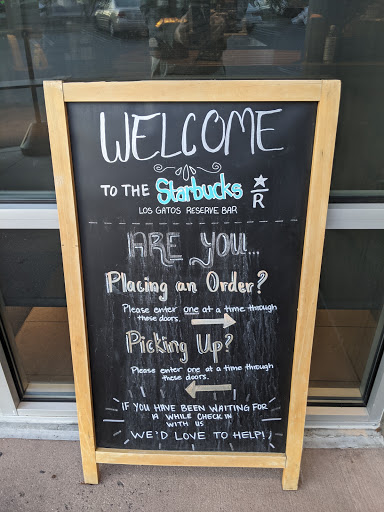 WELCOME
TO THE Starbucks ★
R
LOS GATOS RESERVE BAR
ARE YOU...
Placing an Order?
Please enter one at a time through
these doors. →
Picking Up?
Please enter one at a time through
these doors. ←
IF YOU HAVE BEEN WAITING FOR
A WHILE CHECK IN
WITH US
WE'D LOVE TO HELP!